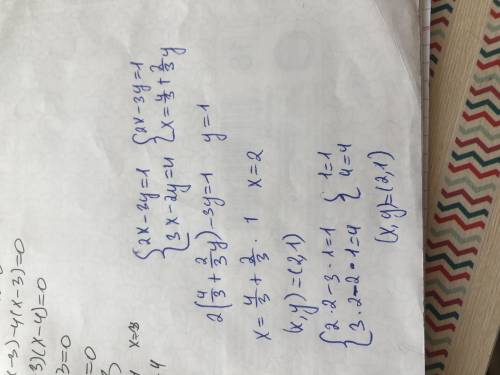 -3)-4(x-3)=0
3)(x-4)=0
3=0
=0
x=3
=4
{2x-3y=1 {2x-3y=1
{3x-2y=4 {x=4/3+2/3y
2(4/3+2/3y)-3y=1 y=1
x=4/3+2/3·1 x=2
(x,y)=(2,1)
{2·2-3·1=1 {1=1
{3·2-2·1=4 {4=4
(x,y)=(2,1)